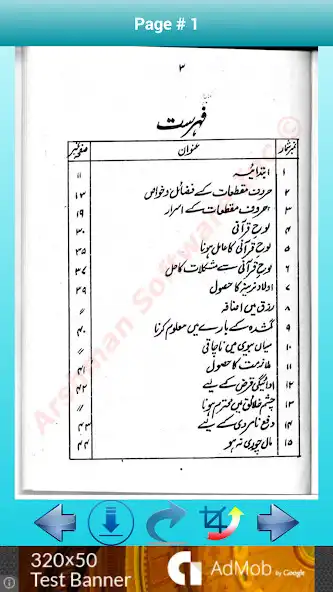 Page # 1
۳
فہرست
نمبرشمار عنوان صفحہ نمبر
۱ ابتدائیہ ۱۱
۲ حروف مقطعات کے فضائل و خواص ۱۳
۳ حروف مقطعات کے اسرار ۱۹
۴ لوح قرآنی ۳۰
۵ لوح قرآنی کا عامل ہونا ۳۵
۶ لوح قرآنی سے مشکلات کا حل ۳۷
۷ اولاد نرینہ کا حصول ۳۹
۸ رزق میں اضافہ 〃
۹ گمشدہ کے بارے میں معلوم کرنا ۴۰
۱۰ میاں بیوی میں ناچاقی 〃
۱۱ ملازمت کا حصول ۴۱
۱۲ ادائیگی قرض کے لیے ۴۲
۱۳ چشم خلائق میں محترم ہونا 〃
۱۴ دفع نامردی کے لیے ۴۳
۱۵ مال چوری نہ ہو ۴۴
Arshman Software ©
320x50
Test Banner
AdMob by Google